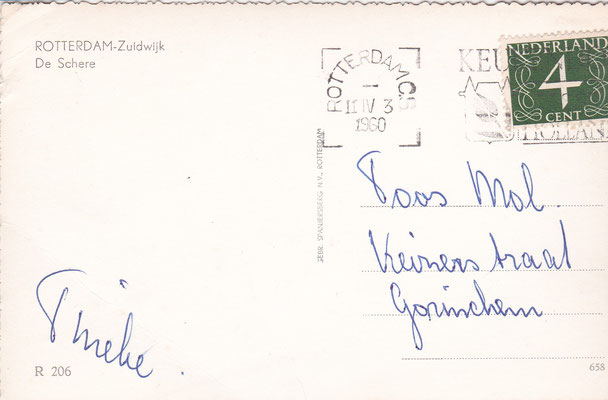 ROTTERDAM-Zuidwijk
De Schere
ROTTERDAM CS
11 IV 3
1960
KEU
HOLLAND
NEDERLAND
4
CENT
GEBR. SPANJERSBERG N.V., ROTTERDAM
Toos Mol.
Keizerstraat
Gorinchem
Tineke.
R 206
658